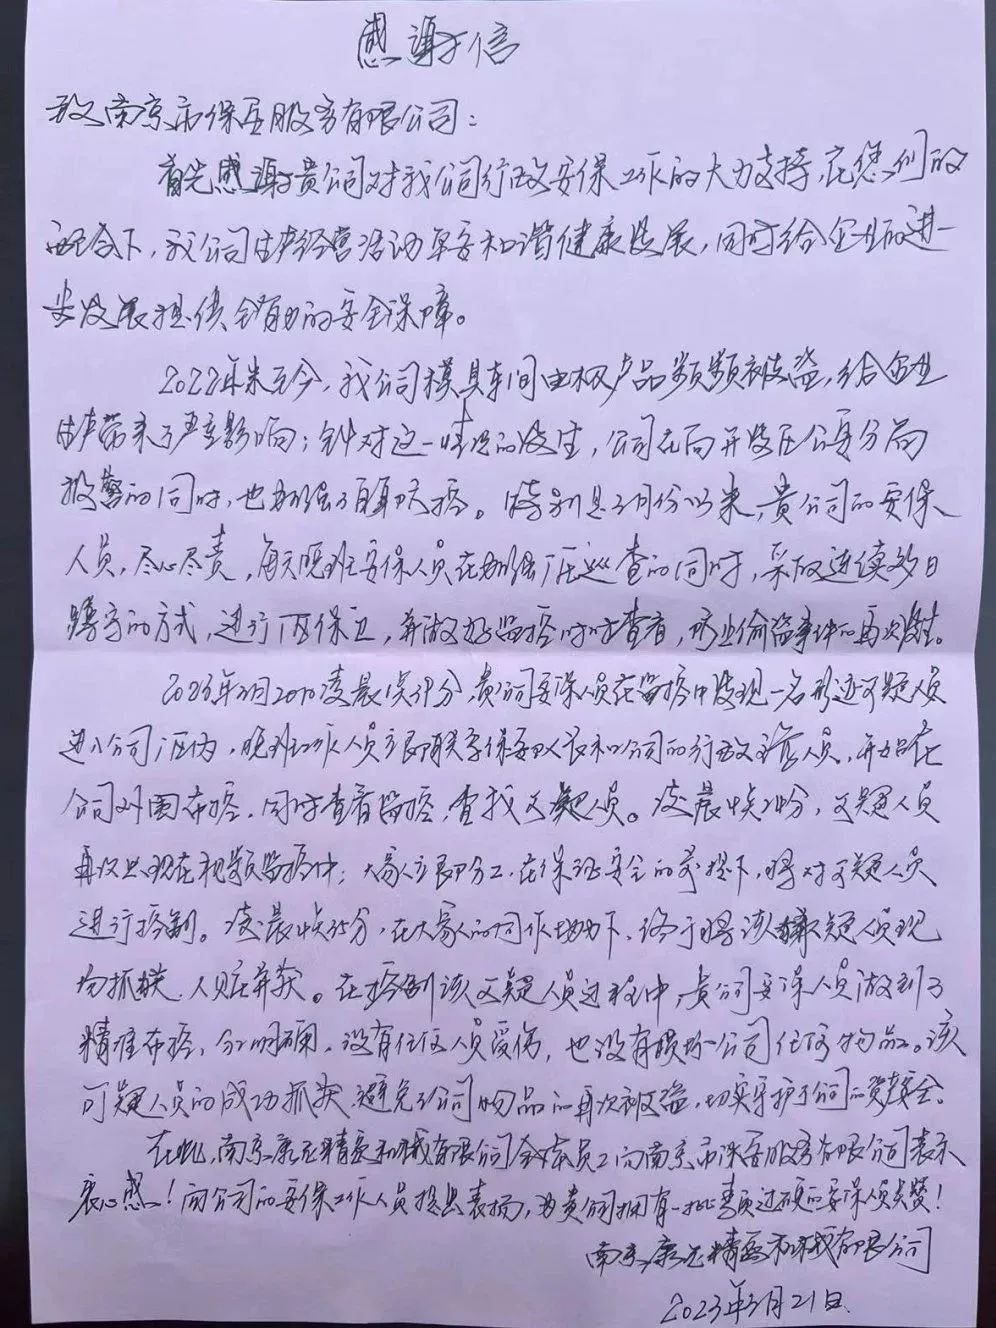 感谢信
致南京市保安服务有限公司：
首先感谢贵公司对我公司行政安保工作的大力支持，在您们的
配合下，我公司生产经营活动平安和谐健康发展，同时给企业的进一
步发展提供全有力的安全保障。
2022年末至今，我公司模具车间电极产品频频被盗，给企业
生产带来了严重影响；针对这一情况的发生，公司在向开发区公安分局
报警的同时，也加强了自身防控。特别是3月份以来，贵公司的安保
人员，尽心尽责，每天晚班安保人员在加强厂区巡查的同时，采取连续多日
蹲守的方式，进行厂区保卫，并做好监控时时查看，防止偷盗事件的再次发生。
2023年3月20日凌晨 点 分，贵公司安保人员在监控中发现一名形迹可疑人员
进入公司厂区内，晚班工作人员立即联系保安队长和公司的行政主管人员，并 在
公司外围布控，同时查看监控，查找可疑人员。凌晨 点 分，可疑人员
再次出现在视频监控中；大家立即分工，在保证安全的前提下，将对可疑人员
进行控制。凌晨 点 分，在大家的同 协助下，终于将该嫌疑人员现
场抓获，人赃并获。在控制该可疑人员过程中，贵公司安保人员做到了
精准布控，分工明确，没有任何人员受伤，也没有损坏公司任何物品。该
可疑人员的成功抓获，避免了公司物品的再次被盗，切实守护了公司的资产安全。
在此，南京康尼精密机械有限公司全体员工向南京市保安服务有限公司表示
衷心感谢！向公司的安保工作人员提出表扬，为贵公司拥有一批素质过硬的安保人员点赞！
南京康尼精密机械有限公司
2023年3月21日